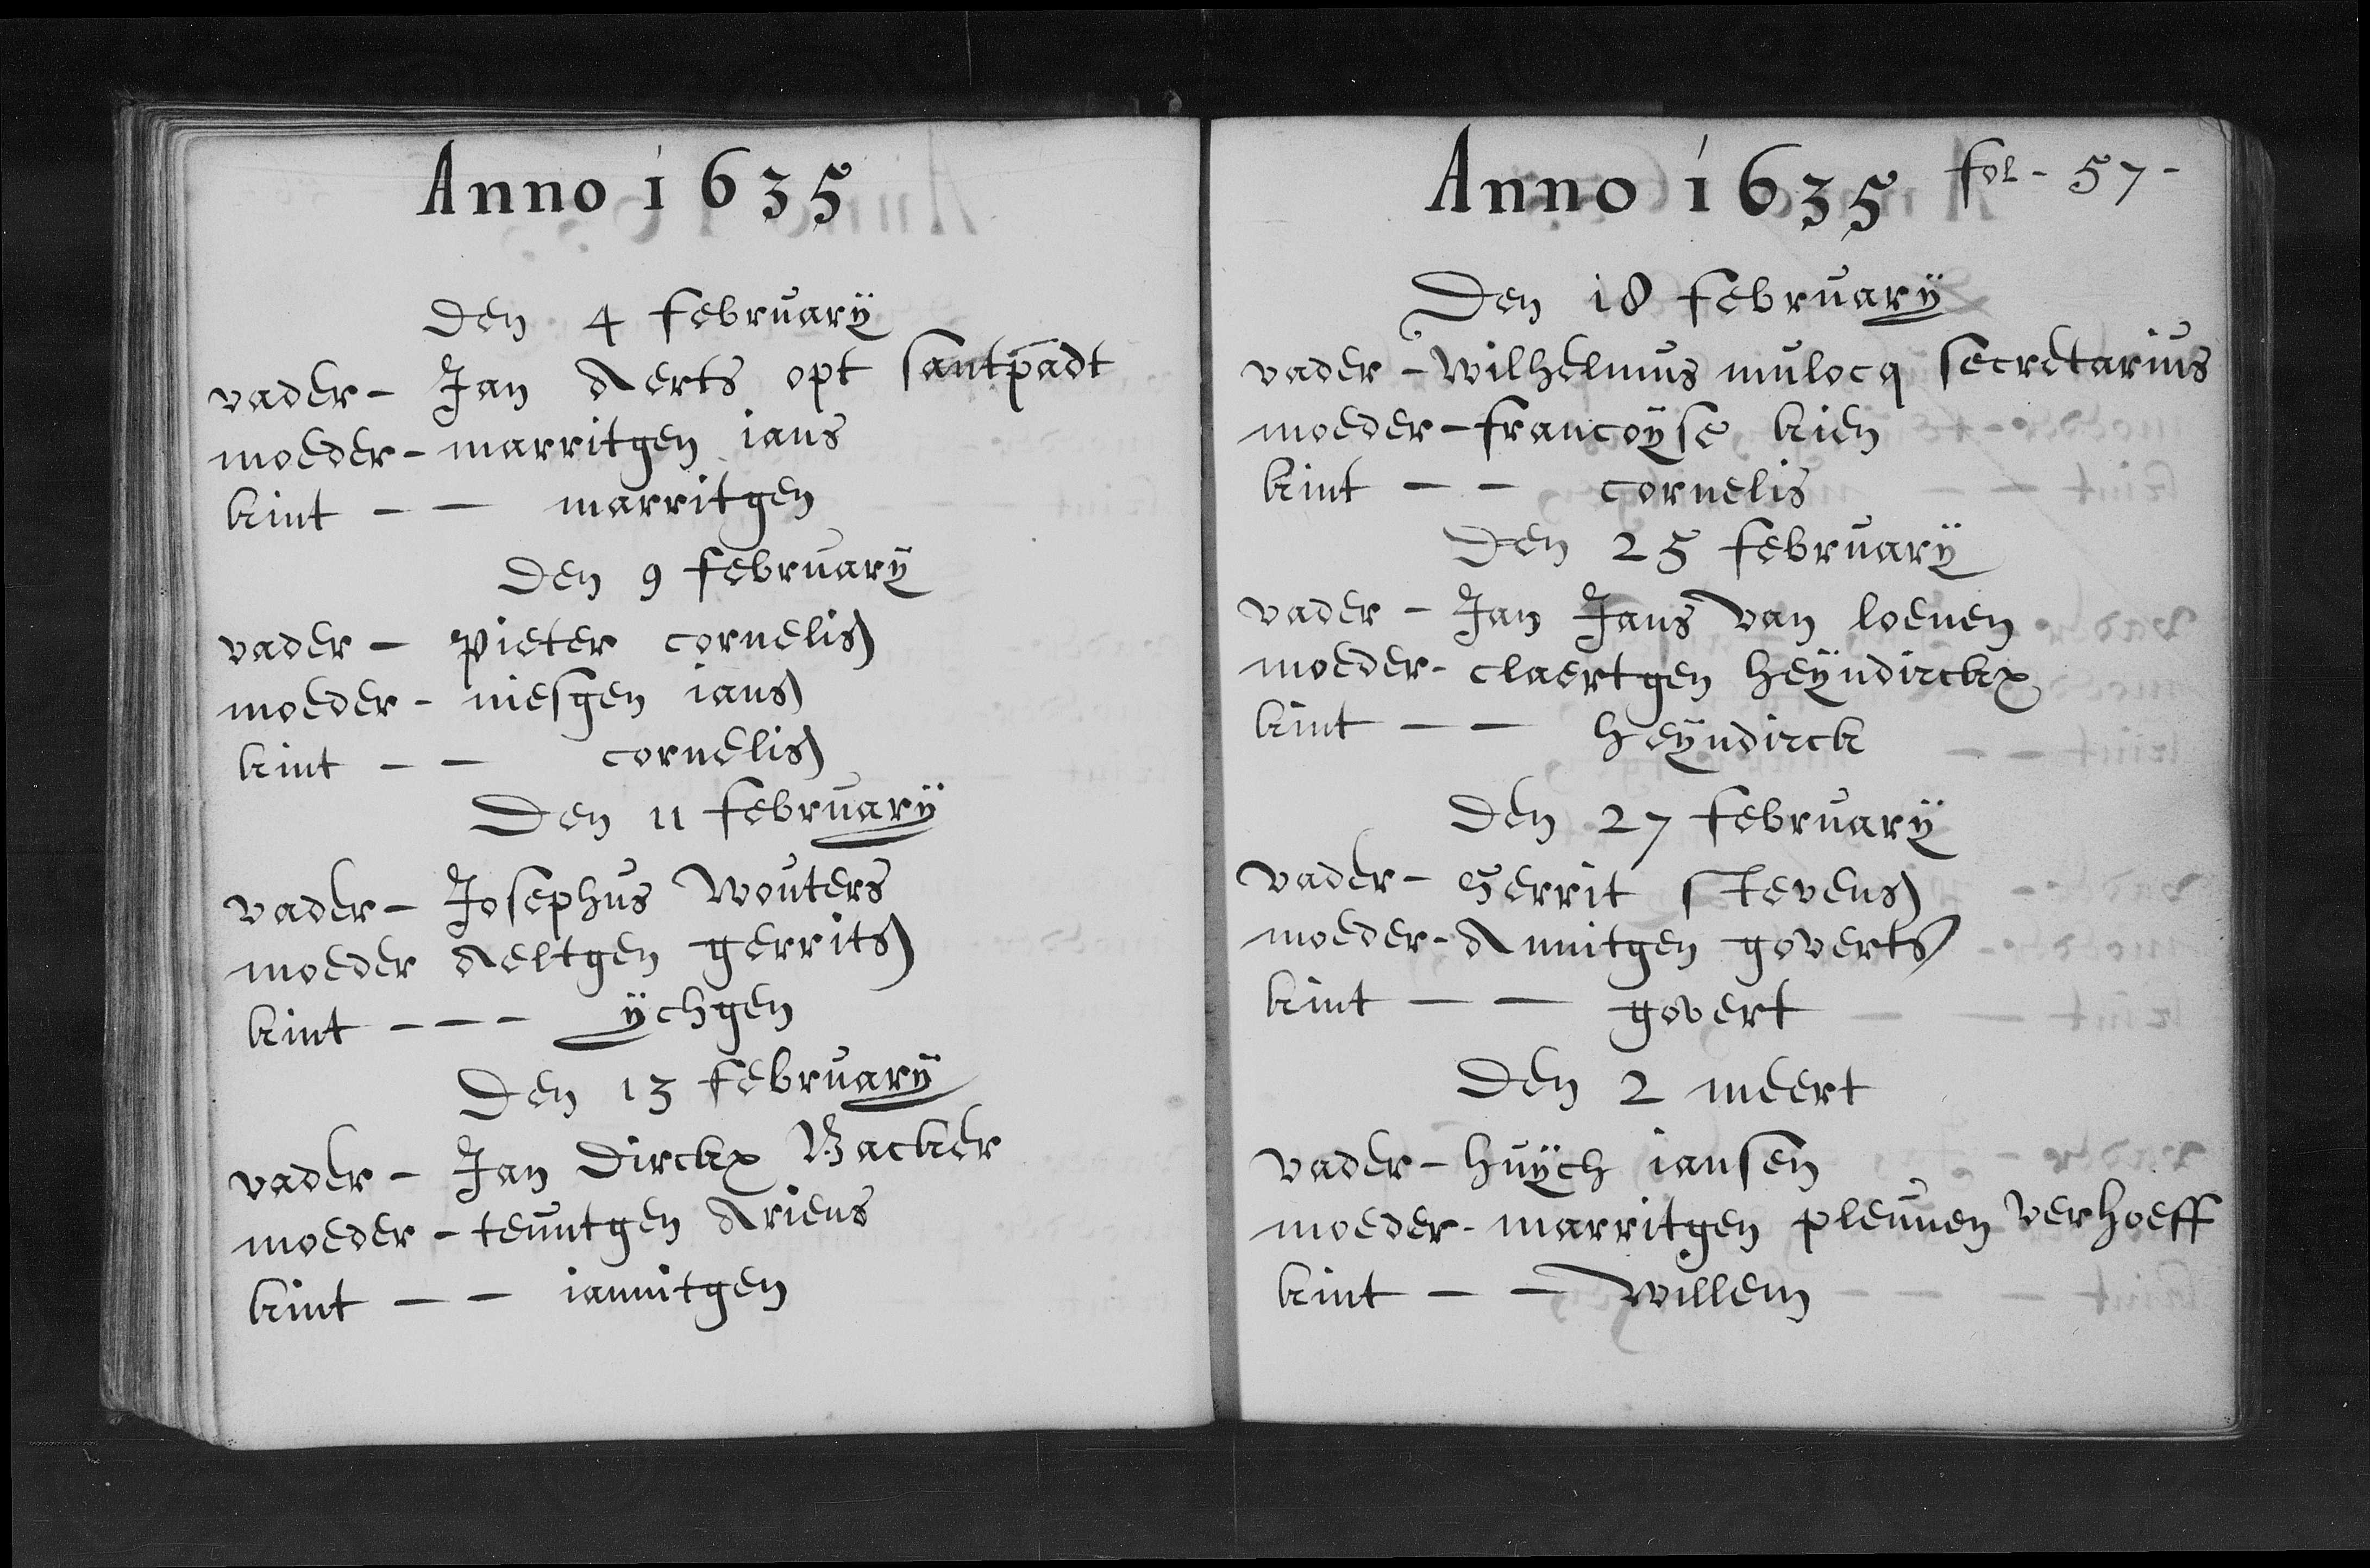 Anno 1635
Den 4 februarÿ
vader - Jan Aerts opt santpadt
moeder - marritgen ians
kint - - marritgen
Den 9 februarÿ
vader - Pieter cornelis
moeder - niesgen ians
kint - - cornelis
Den 11 februarÿ
vader - Josephus Wouters
moeder Aeltgen gerrits
kint - - - ÿchgen
Den 13 februarÿ
vader - Jan Dirckx Backer
moeder - teuntgen Ariens
kint - - iannitgen
Anno 1635 fol - 57 -
Den 18 februarÿ
vader - Wilhelmus mulocq secretarius
moeder - francoÿse kien
kint - - cornelis
Den 25 februarÿ
vader - Jan Jans van loenen
moeder - claertgen heÿndirckx
kint - - heÿndirck
Den 27 februarÿ
vader - Gerrit stevens
moeder - Annitgen goverts
kint - - govert
Den 2 meert
vader - huÿch iansen
moeder - marritgen pleunen verhoeff
kint - - willem